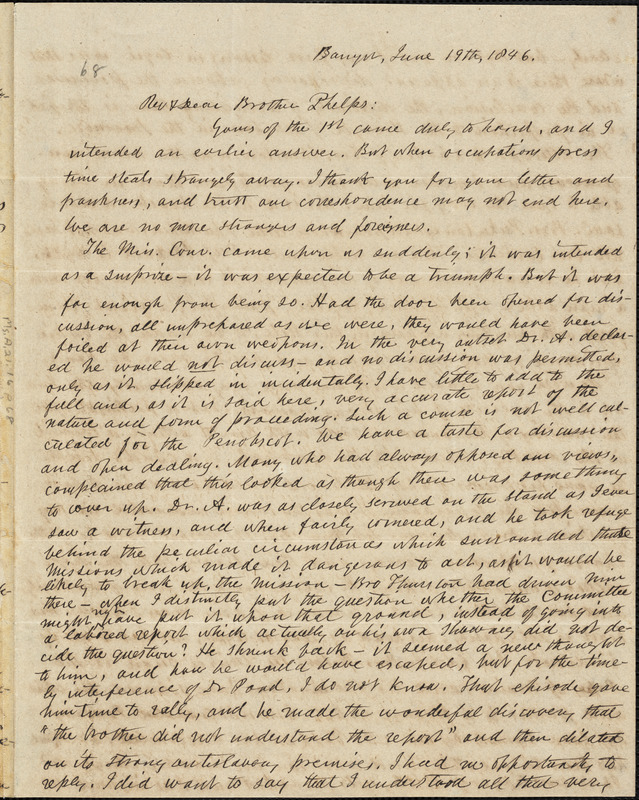 68
Bangor, June 19th, 1846.
Rev & Dear Brother Phelps:
Yours of the 1st came duly to hand, and I
intended an earlier answer. But when occupations press
time steals strangely away. I thank you for your letter and
frankness, and trust our correspondence may not end here.
We are no more strangers and foreigners.
The Miss. Conv. came upon us suddenly; it was intended
as a surprize – it was expected to be a triumph. But it was
far enough from being so. Had the door been opened for dis-
cussion, all unprepared as we were, they would have been
foiled at their own weapons. In the very outset Dr. A. declar-
ed he would not discuss – and no discussion was permitted,
only as it slipped in incidentally. I have little to add to the
full and, as it is said here, very accurate report of the
nature and form of proceeding. Such a course is not well cal-
culated for the Penobscot. We have a taste for discussion
and open dealing. Many who had always opposed our views,
complained that this looked as though there was something
to cover up. Dr. A. was as closely screwed on the stand as I ever
saw a witness, and when fairly cornered, and he took refuge
behind the peculiar circumstances which surrounded these
missions which made it dangerous to act, as it would be
likely to break up, the mission – Bro Thurston had driven him
there – when I distinctly put the question whether the Committee
might not have put it upon that ground, instead of going into
a labored report which actually on his own showing did not de-
cide the question? He shrunk back – it seemed a new thought
to him, and how he would have escaped, but for the time-
ly interference of Dr Pond, I do not know. That episode gave
him time to rally, and he made the wonderful discovery that
"the brother did not understand the report" and then dilated
on its strong antislavery premises. I had no opportunity to
reply. I did want to say that I understood all that very